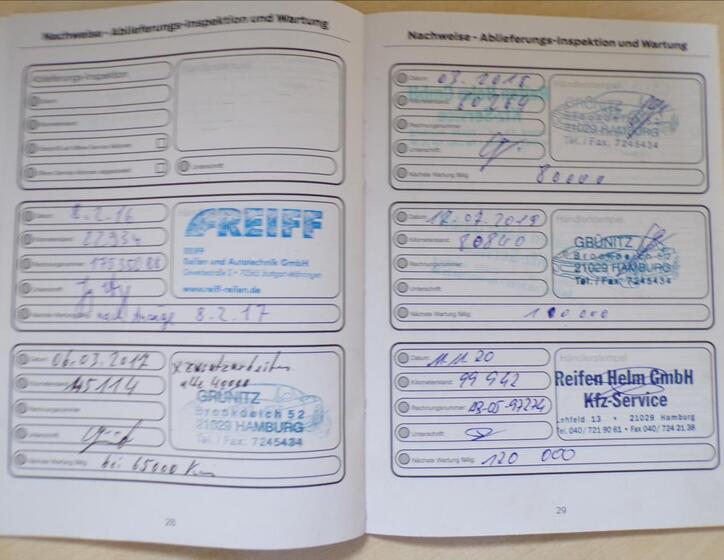 Nachweise - Ablieferungs-Inspektion und Wartung
Ablieferungs-Inspektion
Datum:
Kilometerstand:
Unterschrift:
Datum: 8.2.16
Kilometerstand: 22934
Rechnungsnummer:
Unterschrift:
Nächste Wartung fällig: 8.2.17
REIFF
REIFF
Reifen und Autotechnik GmbH
www.reiff-reifen.de
Datum: 06.03.2017
Kilometerstand: 45114
Rechnungsnummer:
Unterschrift:
Nächste Wartung fällig: bei 65000 Km
x Zusatzarbeiten
alle 40000
GRÜNITZ
Brookdeich 52
21029 HAMBURG
Tel. / Fax: 7245434
28
Nachweise - Ablieferungs-Inspektion und Wartung
Datum: 03.2018
Kilometerstand: 60284
Rechnungsnummer:
Unterschrift:
Nächste Wartung fällig: 80000
Händlerstempel
GRÜNITZ
Brookdeich
21029 HAMBURG
Tel. / Fax: 7245434
Datum: 12.07.2019
Kilometerstand: 80840
Rechnungsnummer:
Unterschrift:
Nächste Wartung fällig: 100000
Händlerstempel
GRÜNITZ
Brookdeich
21029 HAMBURG
Tel. / Fax: 7245434
Datum: 11.11.20
Kilometerstand: 99942
Rechnungsnummer: 03-05-97274
Unterschrift:
Nächste Wartung fällig: 120 000
Händlerstempel
Reifen Helm GmbH
Kfz-Service
Lehfeld 13 • 21029 Hamburg
Tel. 040/ 721 90 61 • Fax 040/ 724 21 38
29